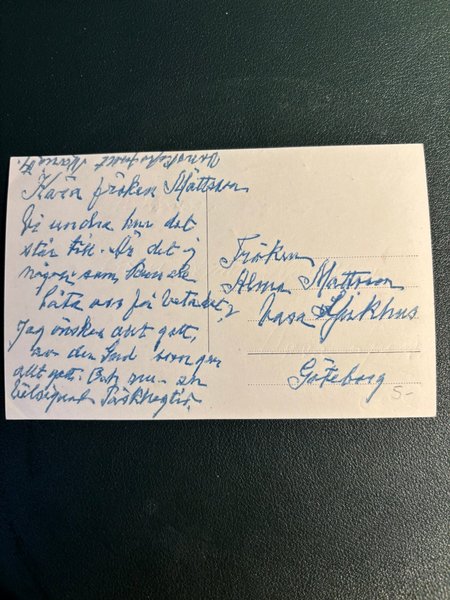 Kära fröken Mattsson
Vi undra hur det
står till. Är det ej
någon som kunde
låta oss få veta det,
Jag önskar allt gott,
av den Gud som ger
allt gott. Och nu en
välsignad Påskhögtid.
Fröken
Alma Mattsson
Vasa Sjukhus
Göteborg
5-